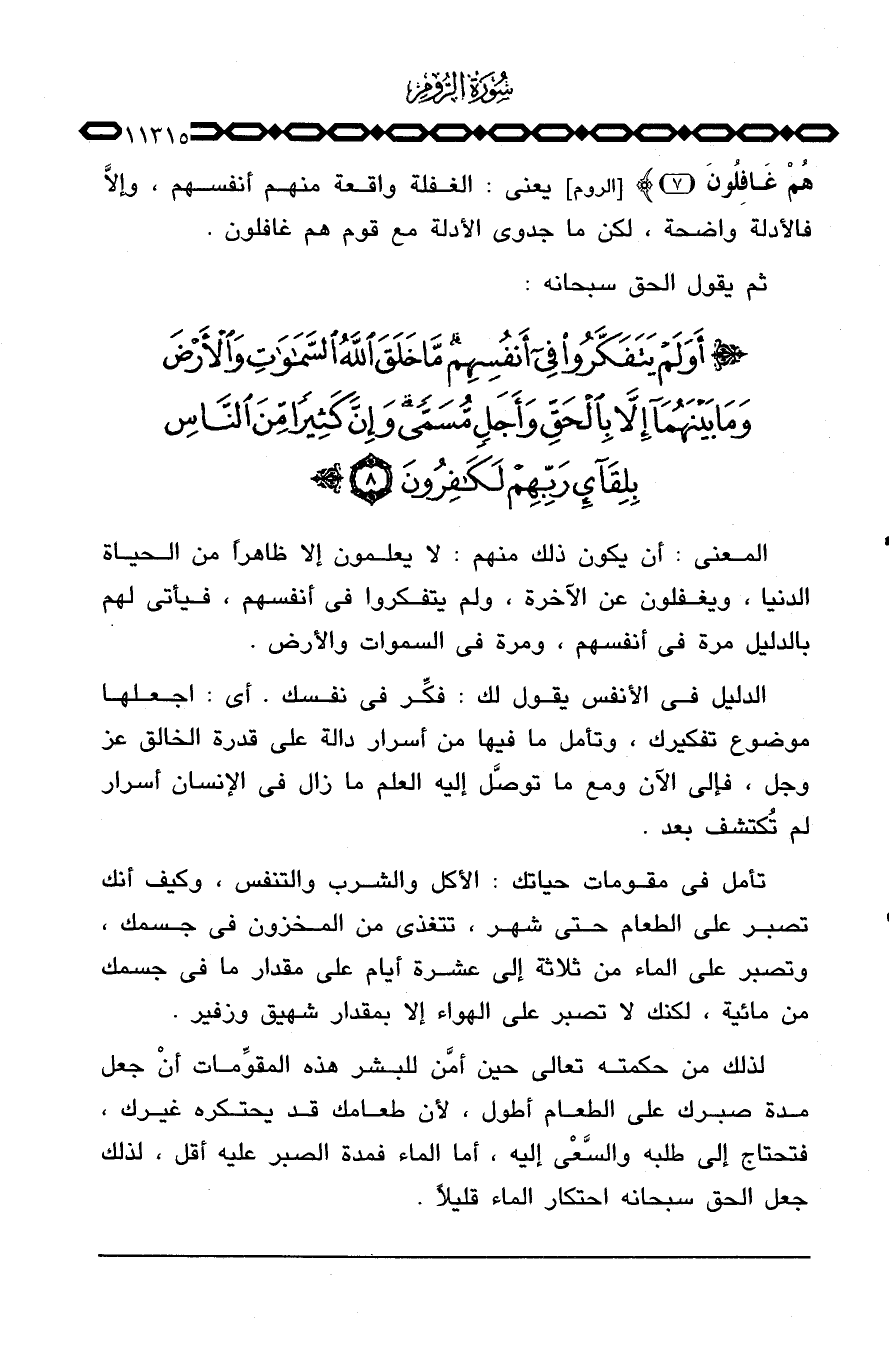 سُورَةُ الرُّومِ
١١٣١٥
هُمْ غَافِلُونَ (٧)﴾ [الروم] يعنى : الغفلة واقعة منهم أنفسهم ، وإلاَّ
فالأدلة واضحة ، لكن ما جدوى الأدلة مع قوم هم غافلون .
ثم يقول الحق سبحانه :
﴿ أَوَلَمْ يَتَفَكَّرُوا۟ فِىٓ أَنفُسِهِم ۗ مَّا خَلَقَ ٱللَّهُ ٱلسَّمَـٰوَٰتِ وَٱلْأَرْضَ
وَمَا بَيْنَهُمَآ إِلَّا بِٱلْحَقِّ وَأَجَلٍ مُّسَمًّى ۗ وَإِنَّ كَثِيرًا مِّنَ ٱلنَّاسِ
بِلِقَآئِ رَبِّهِمْ لَكَـٰفِرُونَ ٨ ﴾
المعنى : أن يكون ذلك منهم : لا يعلمون إلا ظاهراً من الحياة
الدنيا ، ويغفلون عن الآخرة ، ولم يتفكروا فى أنفسهم ، فيأتى لهم
بالدليل مرة فى أنفسهم ، ومرة فى السموات والأرض .
الدليل فى الأنفس يقول لك : فكِّر فى نفسك . أى : اجعلها
موضوع تفكيرك ، وتأمل ما فيها من أسرار دالة على قدرة الخالق عز
وجل ، فإلى الآن ومع ما توصَّل إليه العلم ما زال فى الإنسان أسرار
لم تُكتشف بعد .
تأمل فى مقومات حياتك : الأكل والشرب والتنفس ، وكيف أنك
تصبر على الطعام حتى شهر ، تتغذى من المخزون فى جسمك ،
وتصبر على الماء من ثلاثة إلى عشرة أيام على مقدار ما فى جسمك
من مائية ، لكنك لا تصبر على الهواء إلا بمقدار شهيق وزفير .
لذلك من حكمته تعالى حين أمَّن للبشر هذه المقوِّمات أنْ جعل
مدة صبرك على الطعام أطول ، لأن طعامك قد يحتكره غيرك ،
فتحتاج إلى طلبه والسَّعْى إليه ، أما الماء فمدة الصبر عليه أقل ، لذلك
جعل الحق سبحانه احتكار الماء قليلاً .